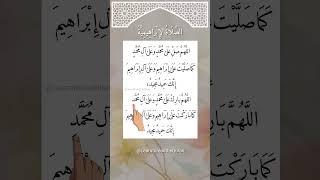 الصَّلَاةُ الإِبْرَاهِيمِيَّةُ
اللَّهُمَّ صَلِّ عَلَى مُحَمَّدٍ وَعَلَى آلِ مُحَمَّدٍ
كَمَا صَلَّيْتَ عَلَى إِبْرَاهِيمَ وَعَلَى آلِ إِبْرَاهِيمَ
إِنَّكَ حَمِيدٌ مَجِيدٌ
اللَّهُمَّ بَارِكْ عَلَى مُحَمَّدٍ وَعَلَى آلِ مُحَمَّدٍ
كَمَا بَارَكْتَ عَلَى إِبْرَاهِيمَ وَعَلَى آلِ إِبْرَاهِيمَ
إِنَّكَ حَمِيدٌ مَجِيدٌ